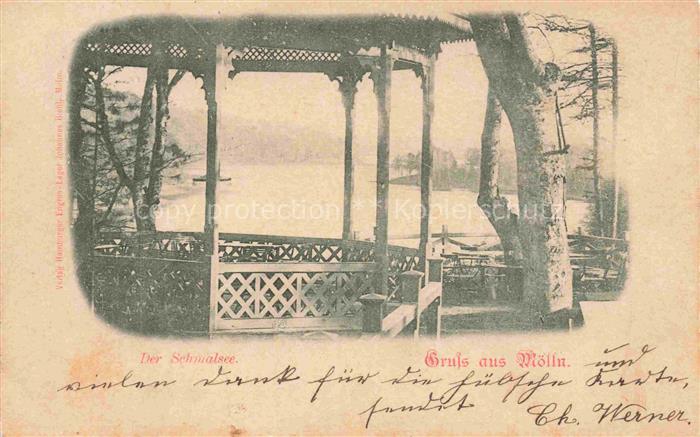 copy protection Kopierschutz
Verlag Hamburger Engros-Lager Johannes
Der Schmalsee.
Gruß aus Mölln. und
vielen Dank für die hübsche Karte,
sendet Ch. Werner.